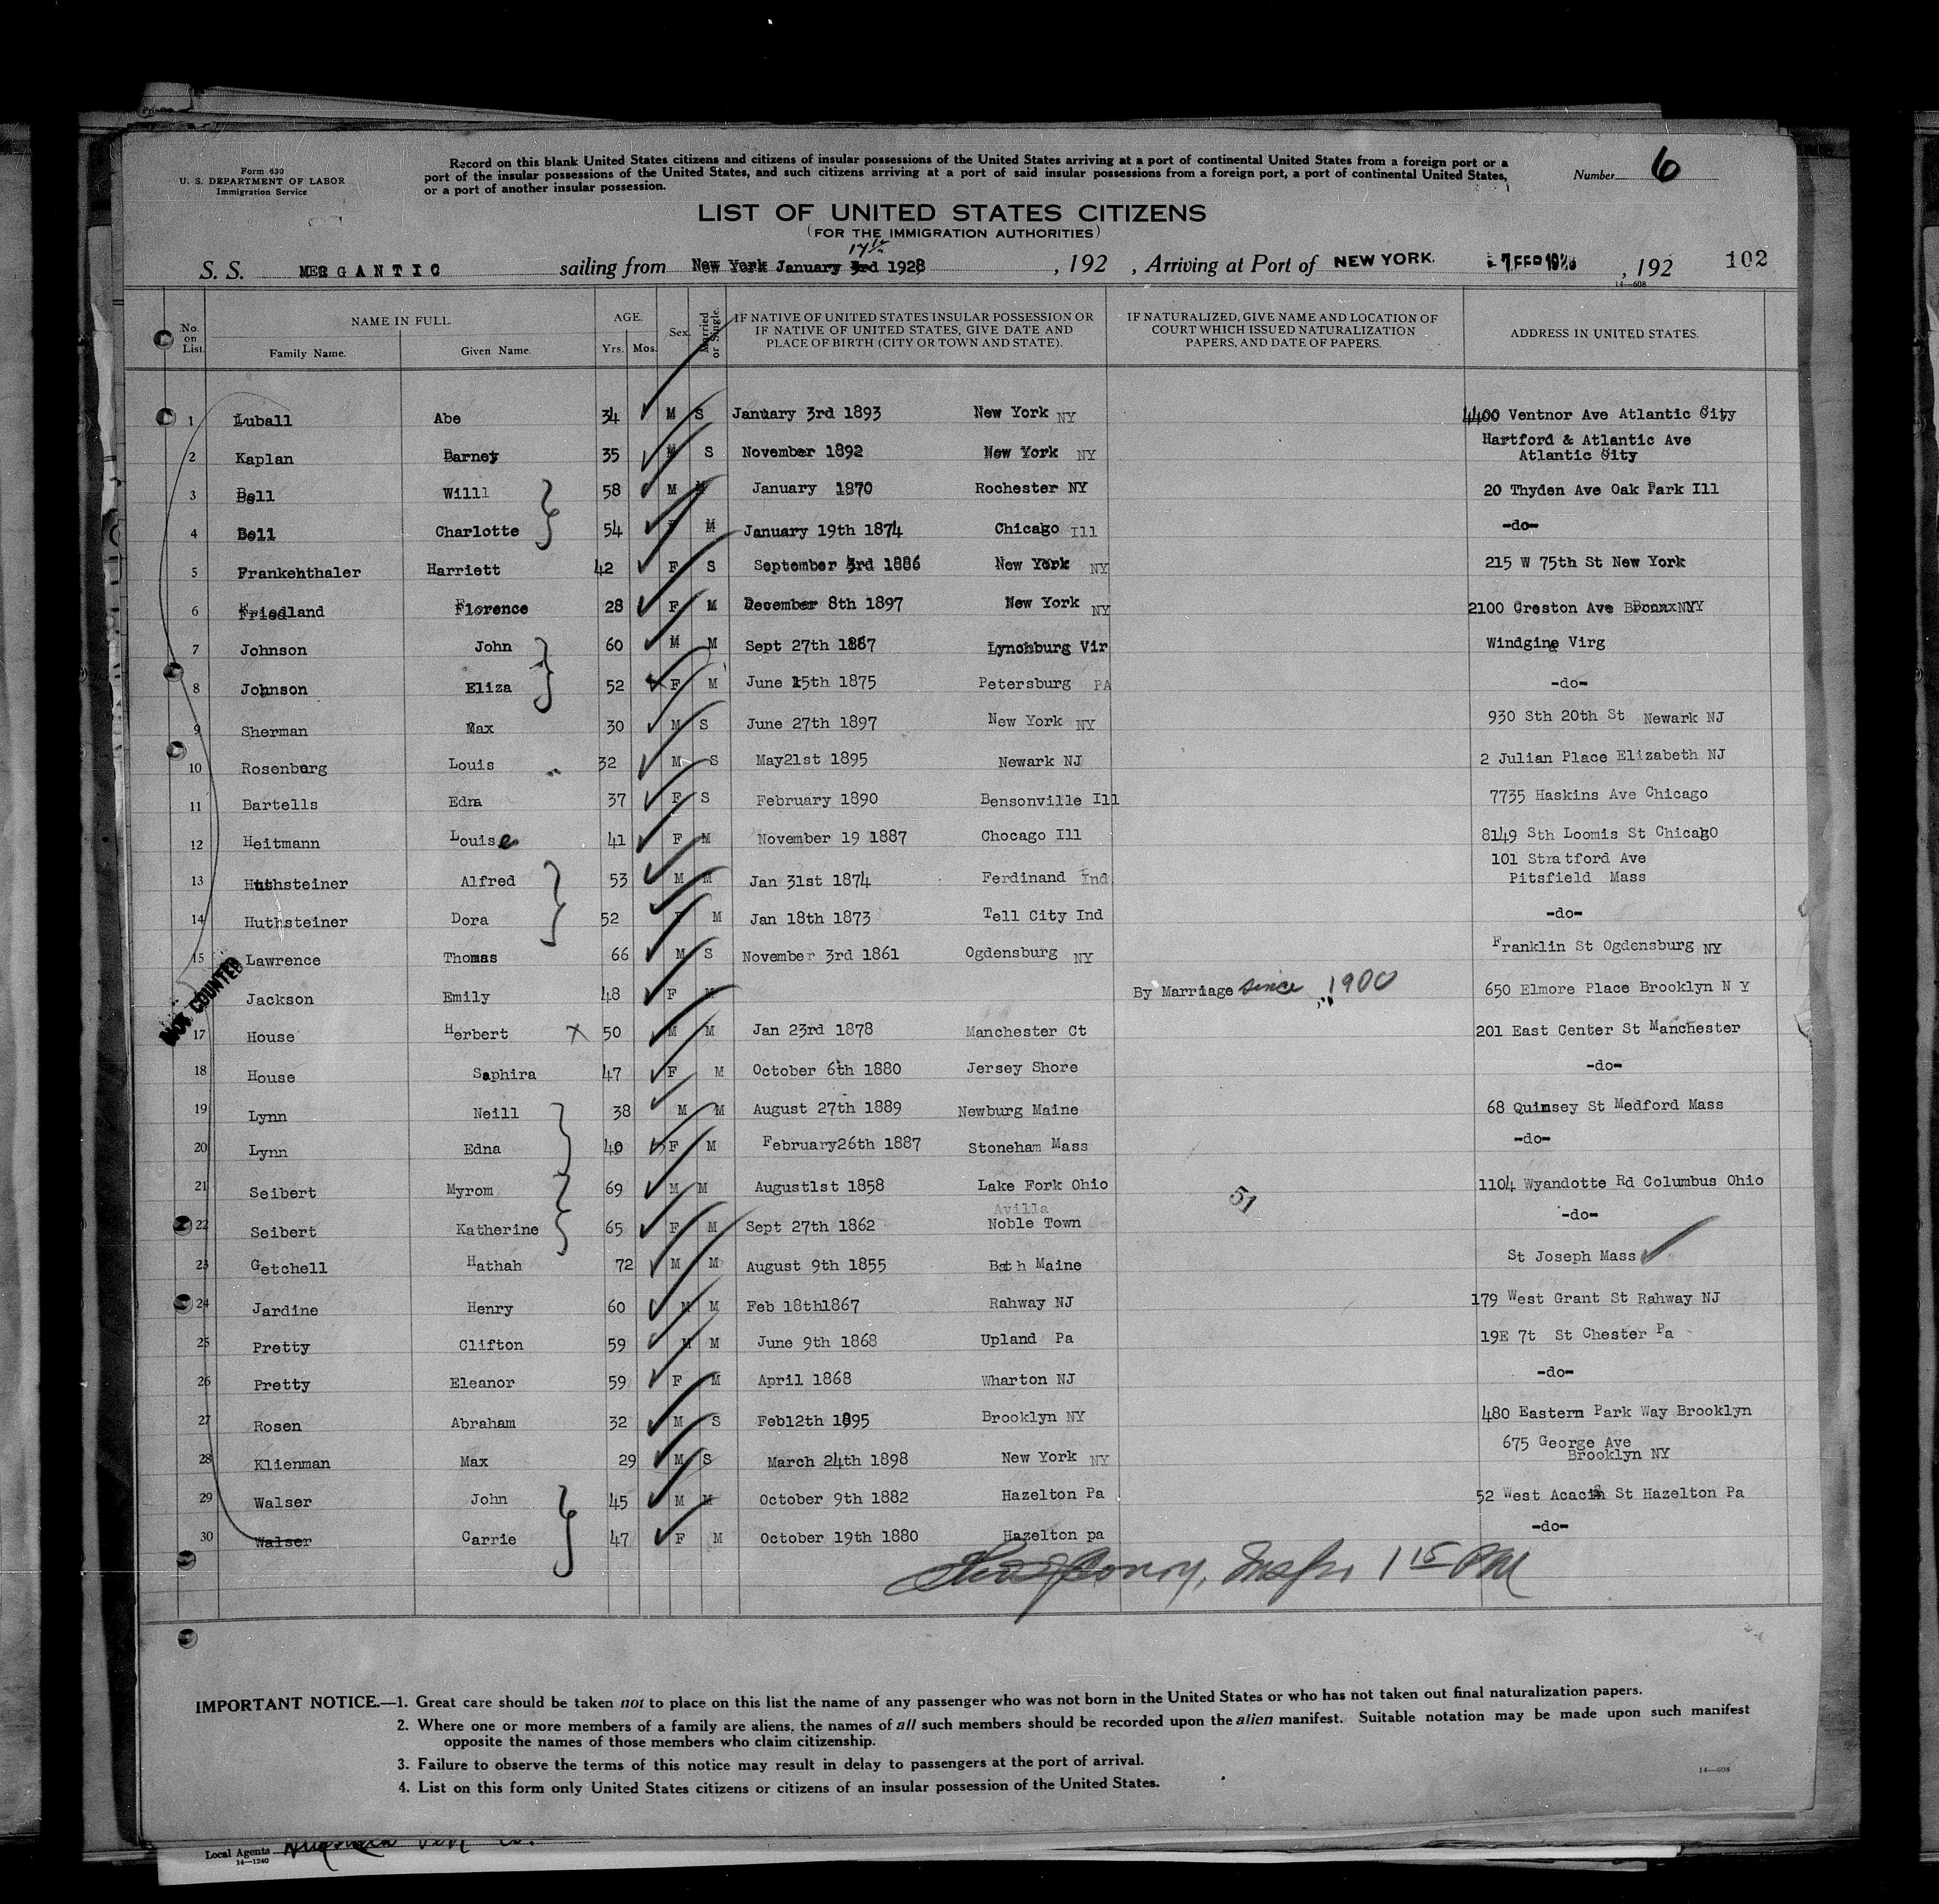 Form 630
U. S. DEPARTMENT OF LABOR
Immigration Service
Record on this blank United States citizens and citizens of insular possessions of the United States arriving at a port of continental United States from a foreign port or a
port of the insular possessions of the United States, and such citizens arriving at a port of said insular possessions from a foreign port, a port of continental United States,
or a port of another insular possession.
Number 6
LIST OF UNITED STATES CITIZENS
(FOR THE IMMIGRATION AUTHORITIES)
17th
S. S. MERGANTIC sailing from New York January 3rd 1928, 192 , Arriving at Port of NEW YORK. 7 FEB 1928, 192 102
14—608
No. on List. NAME IN FULL. Family Name. Given Name. AGE. Yrs. Mos. Sex. Married or Single. IF NATIVE OF UNITED STATES INSULAR POSSESSION OR IF NATIVE OF UNITED STATES, GIVE DATE AND PLACE OF BIRTH (CITY OR TOWN AND STATE). IF NATURALIZED, GIVE NAME AND LOCATION OF COURT WHICH ISSUED NATURALIZATION PAPERS, AND DATE OF PAPERS. ADDRESS IN UNITED STATES.
1 Luball Abe 34 M S January 3rd 1893 New York NY 4400 Ventnor Ave Atlantic City
2 Kaplan Barney 35 M S November 1892 New York NY Hartford & Atlantic Ave
Atlantic City
3 Bell Willl 58 M M January 1870 Rochester NY 20 Thyden Ave Oak Park Ill
4 Bell Charlotte 54 F M January 19th 1874 Chicago Ill -do-
5 Frankenthaler Harriett 42 F S September 3rd 1886 New York NY 215 W 75th St New York
6 Friedland Florence 28 F M December 8th 1897 New York NY 2100 Creston Ave Bronx NY
7 Johnson John 60 M M Sept 27th 1867 Lynchburg Vir Windgine Virg
8 Johnson Eliza 52 F M June 15th 1875 Petersburg PA -do-
9 Sherman Max 30 M S June 27th 1897 New York NY 930 Sth 20th St Newark NJ
10 Rosenberg Louis 32 M S May21st 1895 Newark NJ 2 Julian Place Elizabeth NJ
11 Bartells Edna 37 F S February 1890 Bensonville Ill 7735 Haskins Ave Chicago
12 Heitmann Louise 41 F M November 19 1887 Chocago Ill 8149 Sth Loomis St Chicago
101 Stratford Ave
13 Huthsteiner Alfred 53 M M Jan 31st 1874 Ferdinand Ind Pitsfield Mass
14 Huthsteiner Dora 52 F M Jan 18th 1873 Tell City Ind -do-
15 Lawrence Thomas 66 M S November 3rd 1861 Ogdensburg NY Franklin St Ogdensburg NY
NOT COUNTED
Jackson Emily 48 F M By Marriage since 1900 650 Elmore Place Brooklyn N Y
17 House Herbert X 50 M M Jan 23rd 1878 Manchester Ct 201 East Center St Manchester
18 House Saphira 47 F M October 6th 1880 Jersey Shore -do-
19 Lynn Neill 38 M M August 27th 1889 Newburg Maine 68 Quinsey St Medford Mass
20 Lynn Edna 40 F M February26th 1887 Stoneham Mass -do-
21 Seibert Myrom 69 M M August1st 1858 Lake Fork Ohio 1104 Wyandotte Rd Columbus Ohio
51
Avilla
22 Seibert Katherine 65 F M Sept 27th 1862 Noble Town -do-
23 Getchell Hathah 72 M M August 9th 1855 Bath Maine St Joseph Mass
24 Jardine Henry 60 M M Feb 18th1867 Rahway NJ 179 West Grant St Rahway NJ
25 Pretty Clifton 59 M M June 9th 1868 Upland Pa 19E 7t St Chester Pa
26 Pretty Eleanor 59 F M April 1868 Wharton NJ -do-
27 Rosen Abraham 32 M S Feb12th 1895 Brooklyn NY 480 Eastern Park Way Brooklyn
28 Klienman Max 29 M S March 24th 1898 New York NY 675 George Ave
Brooklyn NY
29 Walser John 45 M M October 9th 1882 Hazelton Pa 52 West Acacia St Hazelton Pa
30 Walser Carrie 47 F M October 19th 1880 Hazelton pa -do-
1 15 PM
IMPORTANT NOTICE.—1. Great care should be taken not to place on this list the name of any passenger who was not born in the United States or who has not taken out final naturalization papers.
2. Where one or more members of a family are aliens, the names of all such members should be recorded upon the alien manifest. Suitable notation may be made upon such manifest
opposite the names of those members who claim citizenship.
3. Failure to observe the terms of this notice may result in delay to passengers at the port of arrival.
4. List on this form only United States citizens or citizens of an insular possession of the United States.
14—608
Local Agents
14—1240